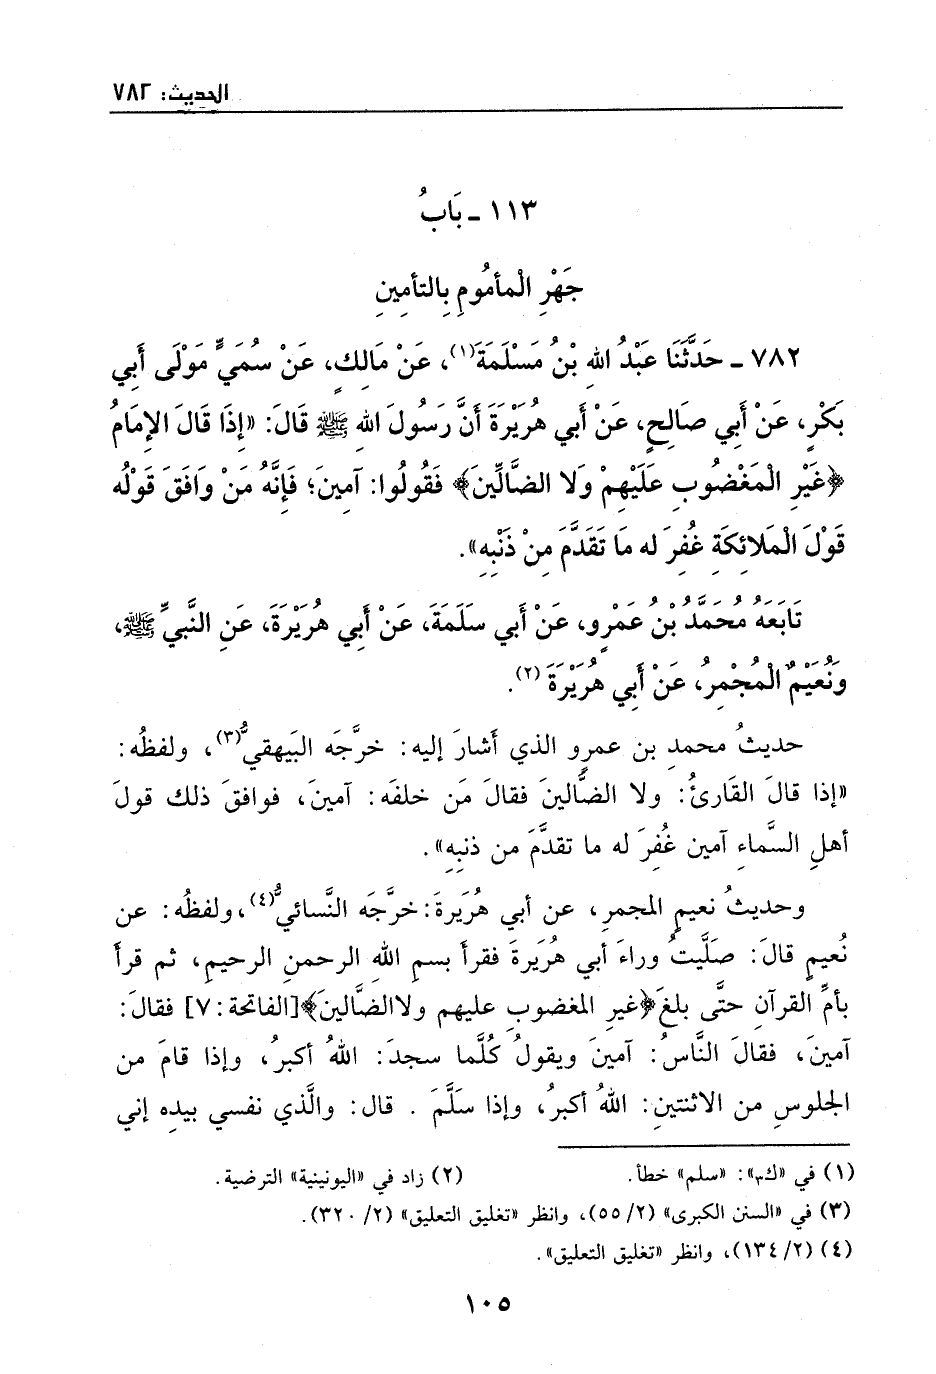 الحديث: ٧٨٢
١١٣ - بَابُ
جَهْرِ الْمأمُومِ بِالتأمِينِ
٧٨٢ - حَدَّثَنَا عَبْدُ اللهِ بْنُ مَسْلَمَةَ(١)، عَنْ مَالِكٍ، عَنْ سُمَيٍّ مَوْلَى أَبِي
بَكْرٍ، عَنْ أَبِي صَالِحٍ، عَنْ أَبِي هُرَيْرَةَ أَنَّ رَسُولَ اللهِ ﷺ قَالَ: «إِذَا قَالَ الإمَامُ
﴿غَيْرِ الْمَغْضُوبِ عَلَيْهِمْ وَلا الضَّالِّينَ﴾ فَقُولُوا: آمِينَ؛ فَإِنَّهُ مَنْ وَافَقَ قَوْلُه
قَوْلَ الْمَلائِكَةِ غُفِرَ له مَا تَقَدَّمَ مِنْ ذَنْبِهِ».
تَابَعَهُ مُحَمَّدُ بْنُ عَمْرٍو، عَنْ أَبِي سَلَمَةَ، عَنْ أَبِي هُرَيْرَةَ، عَنِ النَّبِيِّ ﷺ،
وَنُعَيْمٌ الْمُجْمِرُ، عَنْ أَبِي هُرَيْرَةَ(٢).
حديثُ محمدِ بن عمرٍو الذي أشارَ إليه: خرَّجَه البَيهقيُّ(٣)، ولفظُه:
«إذا قالَ القَارئُ: ولا الضَّالينَ فقالَ مَن خلفَه: آمينَ، فوافقَ ذلك قولَ
أهلِ السَّماءِ آمين غُفِرَ له ما تقدَّمَ من ذنبِهِ».
وحديثُ نعيمٍ المجمرِ، عن أبي هُرَيرةَ: خرَّجَه النَّسائيُّ(٤)، ولفظُه: عن
نُعيمٍ قالَ: صلَّيتُ وراءَ أبي هُرَيرةَ فقرأَ بسمِ اللهِ الرحمنِ الرحيمِ، ثم قرأَ
بأمِّ القرآنِ حتَّى بلغَ ﴿غيرِ المغضوبِ عليهم ولاالضَّالينَ﴾[الفاتحة: ٧] فقالَ:
آمينَ، فقالَ النَّاسُ: آمينَ ويقولُ كُلَّما سجدَ: اللهُ أكبرُ، وإذا قامَ من
الجلوسِ من الاثنتينِ: اللهُ أكبرُ، وإذا سَلَّمَ . قال: والَّذي نفسي بيدِه إني
(١) في «ك٣»: «سلم» خطأ. (٢) زاد في «اليونينية» الترضية.
(٣) في «السنن الكبرى» (٢/ ٥٥)، وانظر «تغليق التعليق» (٢/ ٣٢٠).
(٤) (٢/ ١٣٤)، وانظر «تغليق التعليق».
١٠٥